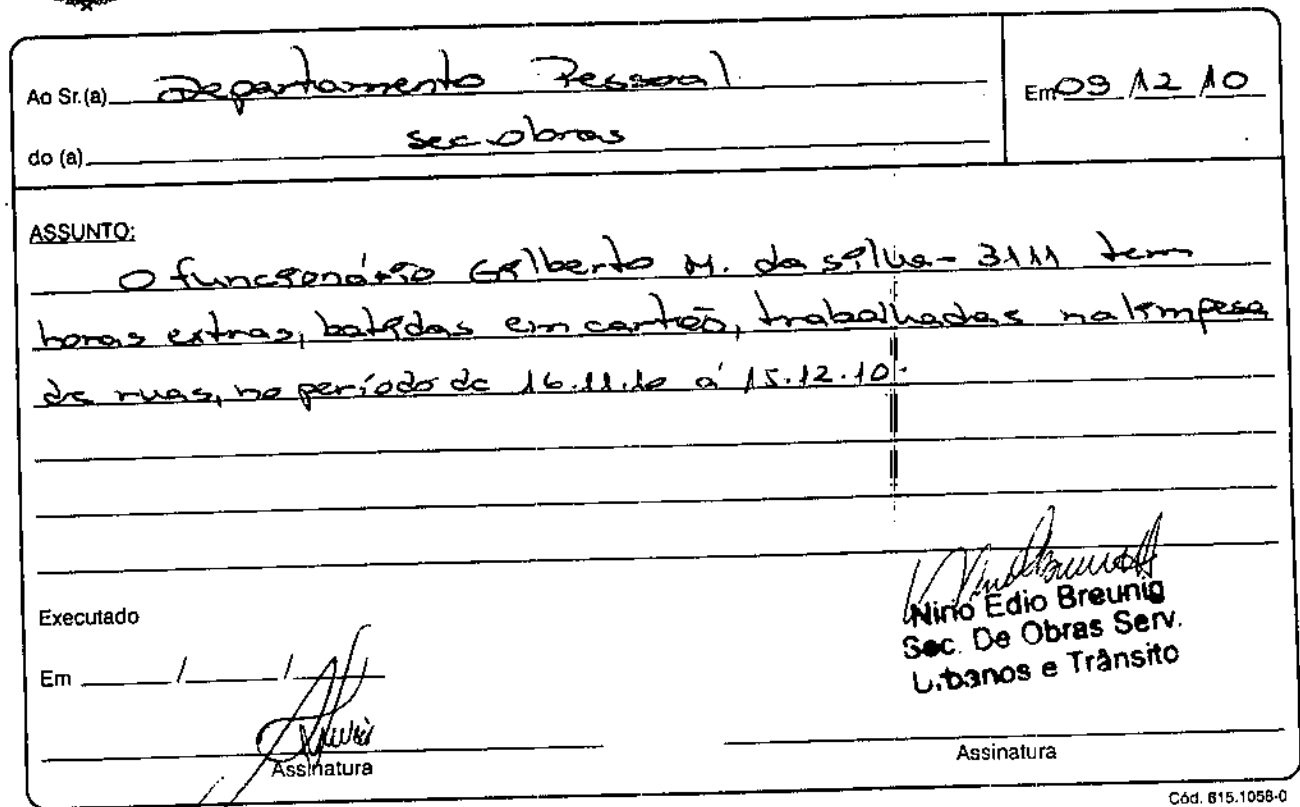 Ao Sr.(a) Departamento Pessoal
Em 09 12 10
do (a) sec obras
ASSUNTO:
O funcionário Gilberto M. da silva - 3111 tem
horas extras, batidas em cartão, trabalhadas na limpesa
de ruas, no período de 16.11.10 á 15.12.10.
Executado
Em / /
Nino Edio Breunig
Sec. De Obras Serv.
Urbanos e Trânsito
Assinatura
Assinatura
Cód. 615.1058-0